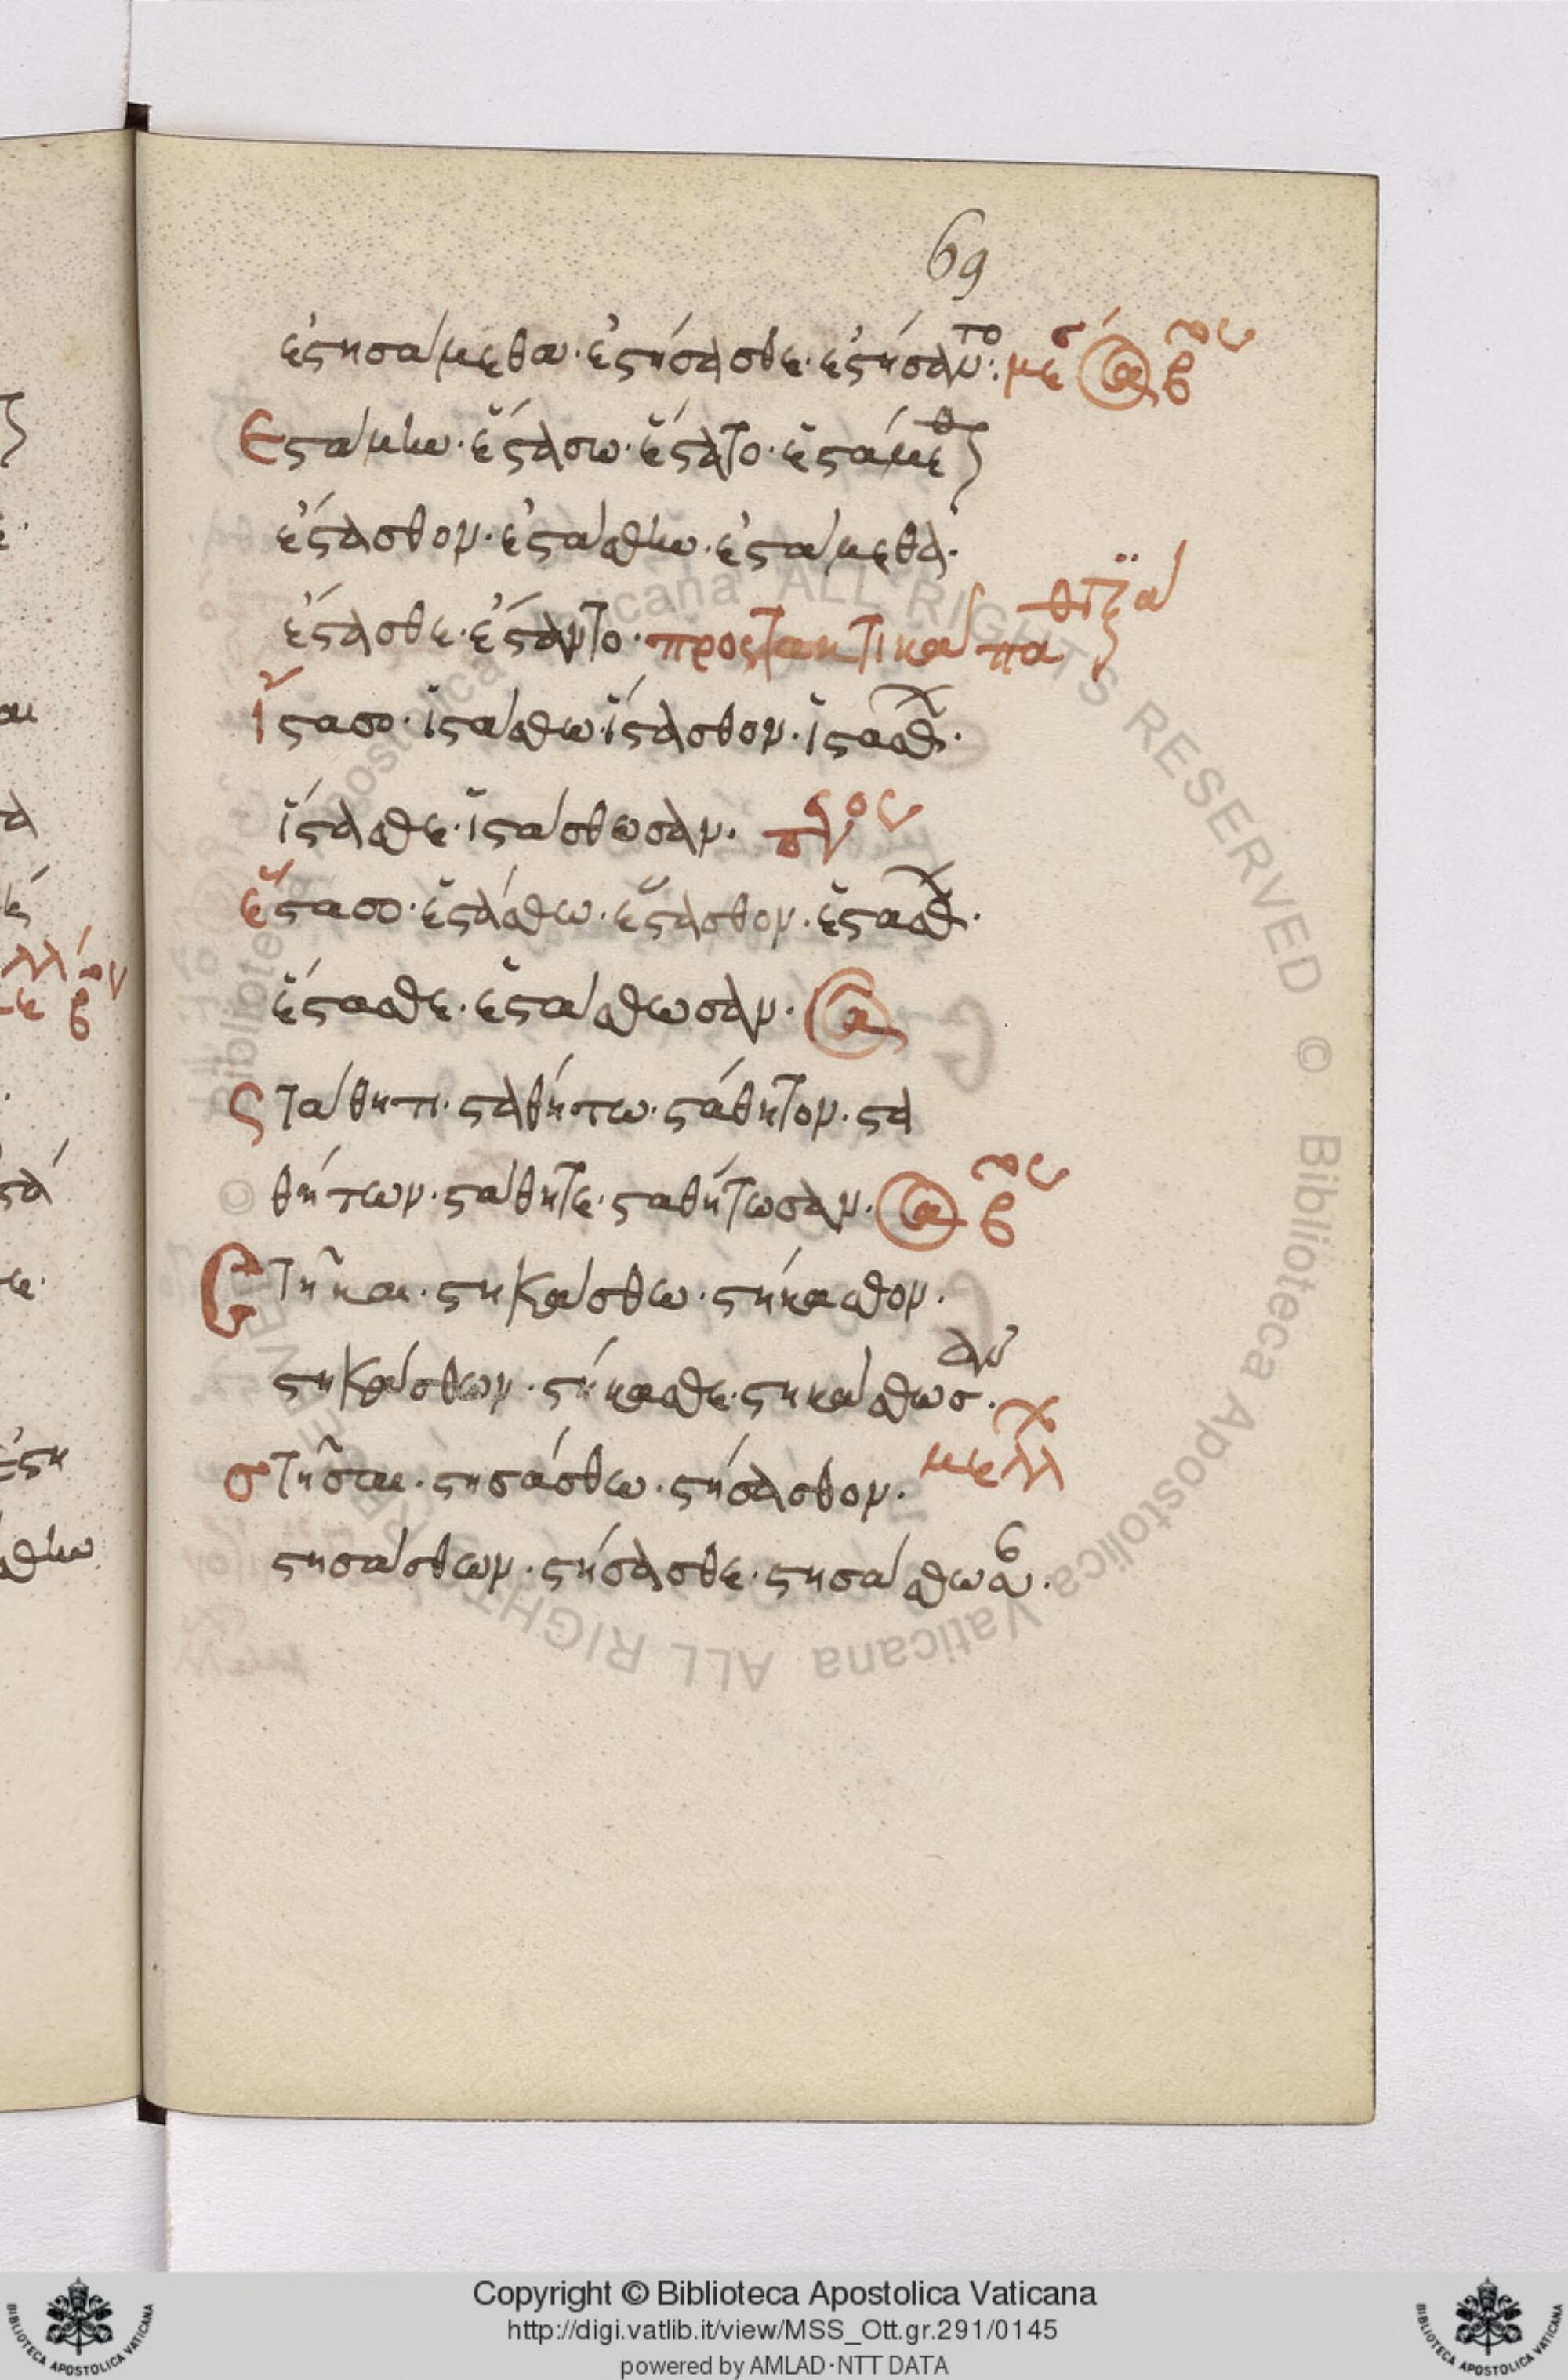 69
ἐστησάμεθα· ἐστήσασθε· ἐστήσαντο: μέσ ἀορ β
Ἐστάμην· ἔστασω· ἔστατο· ἐστάμεθον
ἔστασθον· ἐστάσθην· ἐστάμεθα·
ἔστασθε· ἔσταντο· προστακτικὰ παθητικά
ἵστασο· ἱστάσθω· ἵστασθον· ἱστάσθων·
ἵστασθε· ἱστάσθωσαν·
ἕστασο· ἑστάσθω· ἕστασθον· ἑστάσθων·
ἕστασθε· ἑστάσθωσαν· ἀορ
στάθητι· σταθήτω· στάθητον· στα
θήτων· στάθητε· σταθήτωσαν· ἀορ β
Στῆκαι· στηκάσθω· στήκασθον·
στηκάσθων· στήκασθε· στηκάσθωσαν·
στῆσαι· στησάσθω· στήσασθον· μελλ
στησάσθων· στήσασθε· στησάσθωσαν·
Copyright © Biblioteca Apostolica Vaticana
http://digi.vatlib.it/view/MSS_Ott.gr.291/0145
powered by AMLAD·NTT DATA
BIBLIOTECA APOSTOLICA VATICANA
BIBLIOTECA APOSTOLICA VATICANA
© Biblioteca Apostolica Vaticana ALL RIGHTS RESERVED © Biblioteca Apostolica Vaticana ALL RIGHTS RESERVED